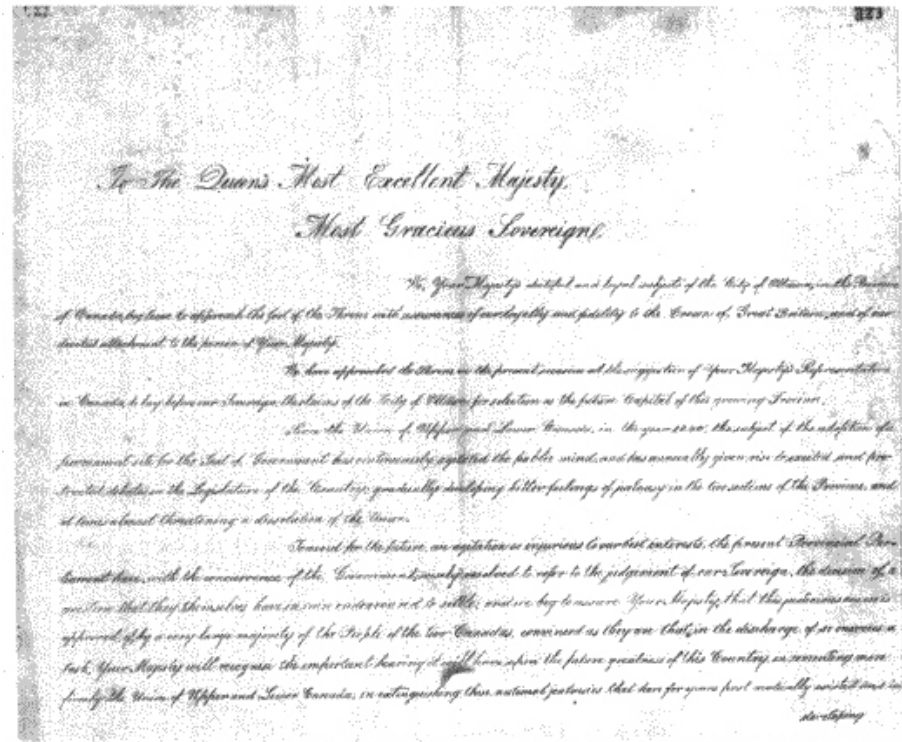 To The Queen's Most Excellent Majesty,
Most Gracious Sovereign,
We, Your Majesty's dutiful and loyal subjects of the City of Ottawa, in the Province
of Canada, beg leave to approach the foot of the Throne with assurances of our loyalty and fidelity to the Crown of Great Britain, and of our
devoted attachment to the person of Your Majesty.
We have approached the Throne on the present occasion at the suggestion of Your Majesty's Representative
in Canada, to lay before our Sovereign, the claims of the City of Ottawa for selection as the future Capital of this growing Province.
Since the Union of Upper and Lower Canada, in the year 1840, the subject of the adoption of a
permanent site for the Seat of Government has continuously agitated the public mind, and has annually given rise to excited and pro-
tracted debates in the Legislature of the Country, gradually developing bitter feelings of jealousy in the two sections of the Province, and
at times almost threatening a dissolution of the Union.
To avoid for the future, an agitation so injurious to our best interests, the present Provincial Par-
liament have, with the concurrence of the Government, wisely resolved to refer to the judgement of our Sovereign, the decision of a
question that they themselves have in vain endeavoured to settle; and we beg to assure Your Majesty, that this judicious course is
approved of by a very large majority of the People of the two Canadas, convinced as they are that, in the discharge of so onerous a
task, Your Majesty will recognise the important bearing it will have upon the future greatness of this Country, in cementing more
firmly the Union of Upper and Lower Canada, in extinguishing those national jealousies that have for years past existed and in
developing